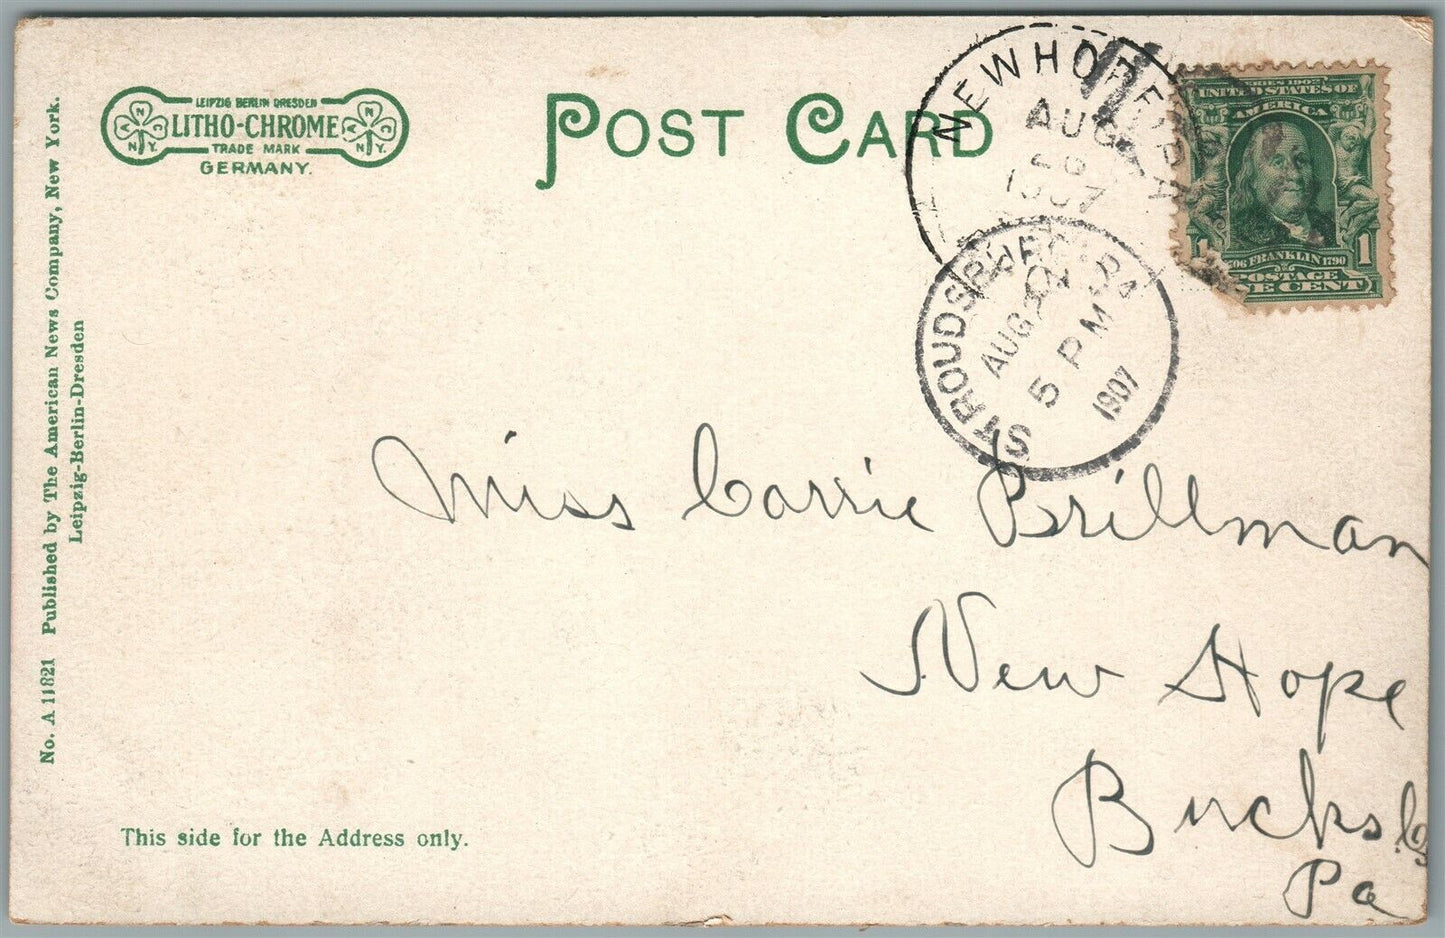 LEIPZIG BERLIN DRESDEN
LITHO-CHROME
TRADE MARK
GERMANY.
N.Y.
N.Y.
POST CARD
NEW HOPE, PA
AUG
1907
STROUDSBURG, PA
AUG
5 PM
1907
SERIES 1902
UNITED STATES OF
AMERICA
1
1
1706 FRANKLIN 1790
POSTAGE
ONE CENT
No. A 11821 Published by The American News Company, New York.
Leipzig-Berlin-Dresden
Miss Carrie Brillman
New Hope
Bucks Co
Pa
This side for the Address only.